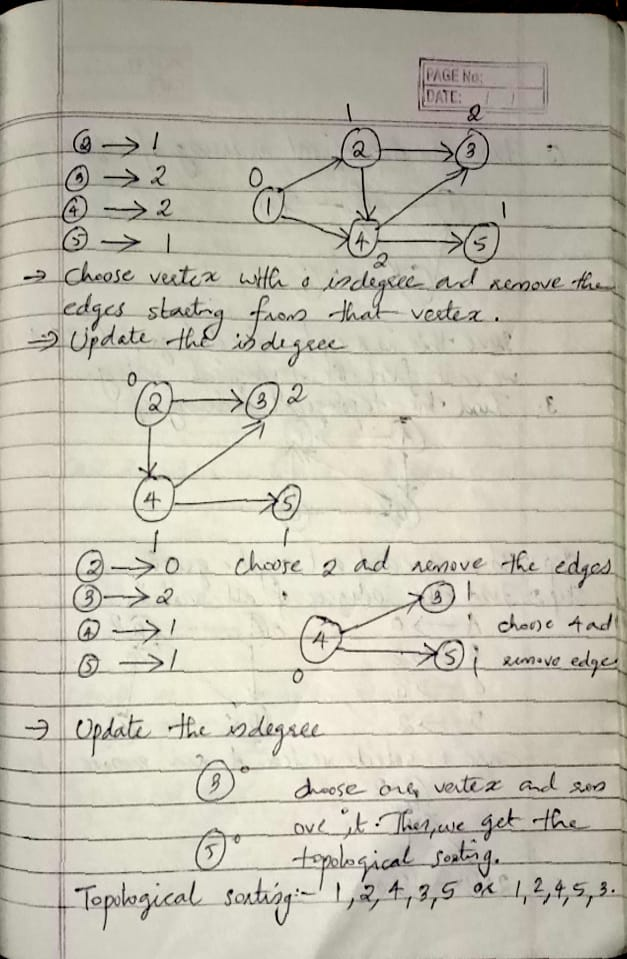 PAGE No:
DATE: / /
1 2
② → 1
③ → 2
④ → 2
⑤ → 1
0 ① ② ③
④ 2 ⑤ 1
→ Choose vertex with 0 indegree and remove the
edges starting from that vertex.
⇒ Update the indegree
0 ② ③ 2
④ ⑤
1 1
② → 0 choose 2 ad remove the edges
③ → 2 ③ 1
④ → 1 ④ choose 4 ad
⑤ → 1 0 ⑤ 1 remove edges
→ Update the indegree
③ 0 choose one vertex and
ove it. Then, we get the
⑤ 0 topological sorting.
Topological sorting:- 1, 2, 4, 3, 5 or 1, 2, 4, 5, 3.